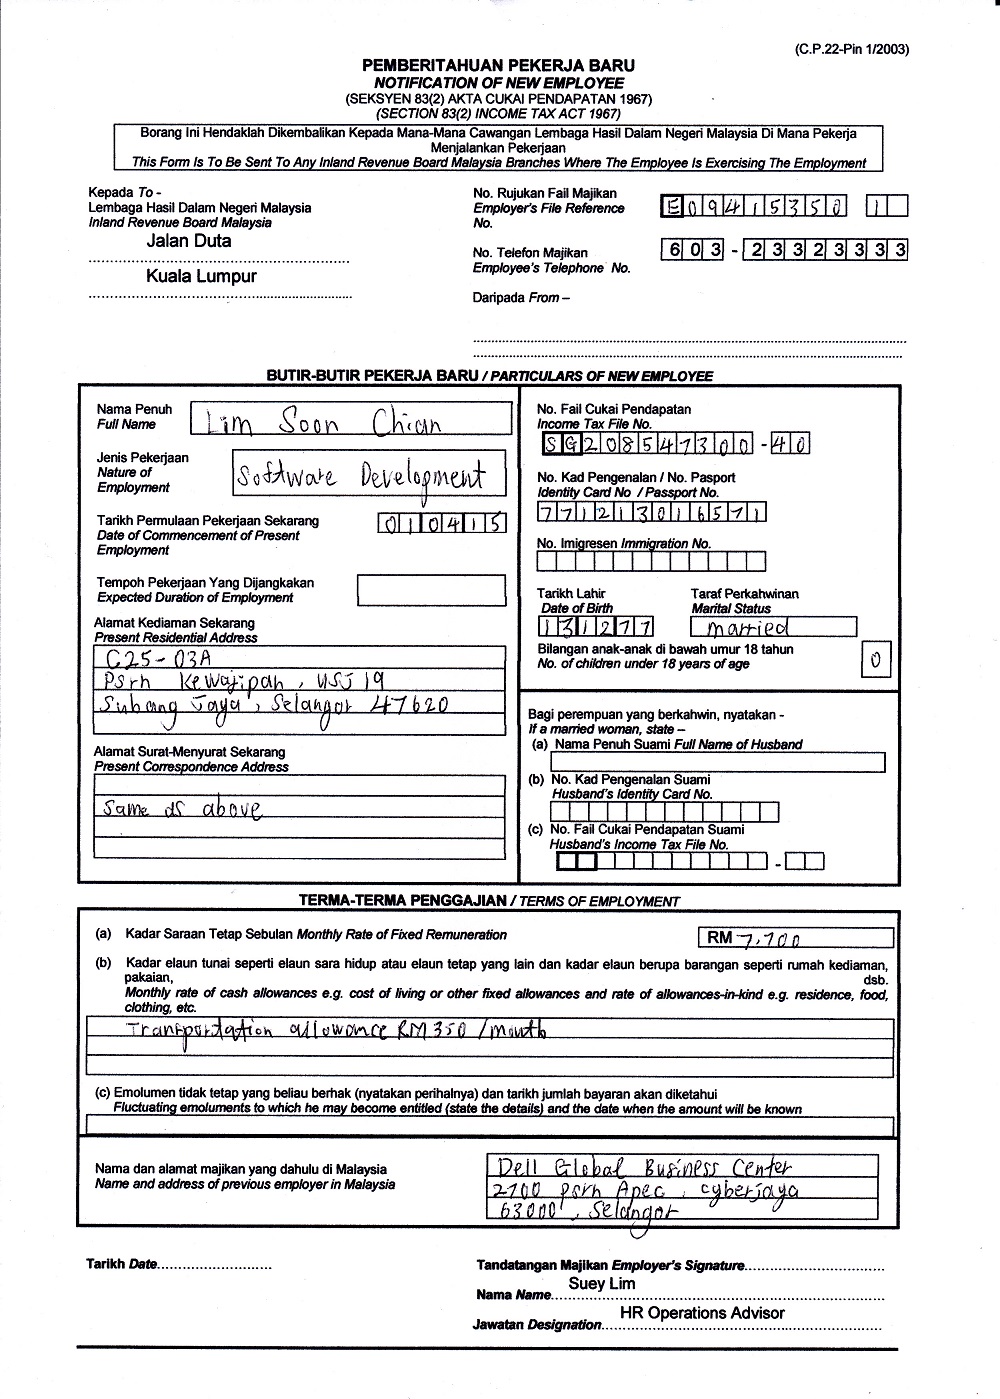 (C.P.22-Pin 1/2003)
PEMBERITAHUAN PEKERJA BARU
NOTIFICATION OF NEW EMPLOYEE
(SEKSYEN 83(2) AKTA CUKAI PENDAPATAN 1967)
(SECTION 83(2) INCOME TAX ACT 1967)
Borang Ini Hendaklah Dikembalikan Kepada Mana-Mana Cawangan Lembaga Hasil Dalam Negeri Malaysia Di Mana Pekerja
Menjalankan Pekerjaan
This Form Is To Be Sent To Any Inland Revenue Board Malaysia Branches Where The Employee Is Exercising The Employment
Kepada To -
Lembaga Hasil Dalam Negeri Malaysia
Inland Revenue Board Malaysia
Jalan Duta
Kuala Lumpur
No. Rujukan Fail Majikan
Employer's File Reference
No.
E09415350 1
No. Telefon Majikan
Employee's Telephone No.
603-23323333
Daripada From –
BUTIR-BUTIR PEKERJA BARU / PARTICULARS OF NEW EMPLOYEE
Nama Penuh
Full Name
Lim Soon Chian
Jenis Pekerjaan
Nature of
Employment
Software Development
Tarikh Permulaan Pekerjaan Sekarang
Date of Commencement of Present
Employment
010415
Tempoh Pekerjaan Yang Dijangkakan
Expected Duration of Employment
Alamat Kediaman Sekarang
Present Residential Address
C25-03A
Psrn Kewajipan, USJ 19
Subang Jaya, Selangor 47620
Alamat Surat-Menyurat Sekarang
Present Correspondence Address
Same as above
No. Fail Cukai Pendapatan
Income Tax File No.
SG208547300-40
No. Kad Pengenalan / No. Pasport
Identity Card No / Passport No.
771213016571
No. Imigresen Immigration No.
Tarikh Lahir
Date of Birth
131277
Taraf Perkahwinan
Marital Status
married
Bilangan anak-anak di bawah umur 18 tahun
No. of children under 18 years of age
0
Bagi perempuan yang berkahwin, nyatakan -
If a married woman, state –
(a) Nama Penuh Suami Full Name of Husband
(b) No. Kad Pengenalan Suami
Husband's Identity Card No.
(c) No. Fail Cukai Pendapatan Suami
Husband's Income Tax File No.
-
TERMA-TERMA PENGGAJIAN / TERMS OF EMPLOYMENT
(a) Kadar Saraan Tetap Sebulan Monthly Rate of Fixed Remuneration
RM 7,700
(b) Kadar elaun tunai seperti elaun sara hidup atau elaun tetap yang lain dan kadar elaun berupa barangan seperti rumah kediaman,
pakaian, dsb.
Monthly rate of cash allowances e.g. cost of living or other fixed allowances and rate of allowances-in-kind e.g. residence, food,
clothing, etc.
Transportation allowance RM350/month
(c) Emolumen tidak tetap yang beliau berhak (nyatakan perihalnya) dan tarikh jumlah bayaran akan diketahui
Fluctuating emoluments to which he may become entitled (state the details) and the date when the amount will be known
Nama dan alamat majikan yang dahulu di Malaysia
Name and address of previous employer in Malaysia
Dell Global Business Center
2700 psrn Apec, cyberjaya
63000, Selangor
Tarikh Date
Tandatangan Majikan Employer's Signature
Suey Lim
Nama Name
HR Operations Advisor
Jawatan Designation